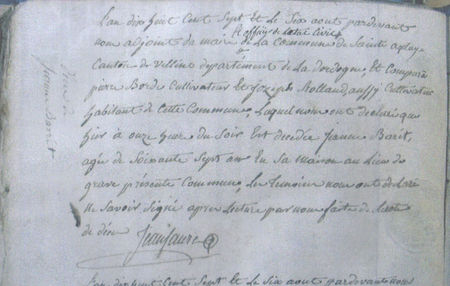 L'an dix huit Cent Sept Et Le Six aout pardevant
nous adjoint du maire & officier de Letat Civil
de La Commune de Sainte
Canton de Villeur departement de La dordogne, Est Comparu
pierre Borde Cultivateur Et Joseph aussy Cultivateur
habitant de Cette Commune, Lesquel nous ont declaré que
hier à onze heure Du Soir Est decedée Jeanne Barit,
agée de Soixante Sept ans En Sa maison au Lieu de
grave présente Commune, Les Temoins nous ont declaré
ne Savoir Signé apres Lecture par nous faite de Lacte
de décé Jeanfaure
L'an dix huit Cent Sept Et Le Six aout pardevant nous
Jeanne Barit